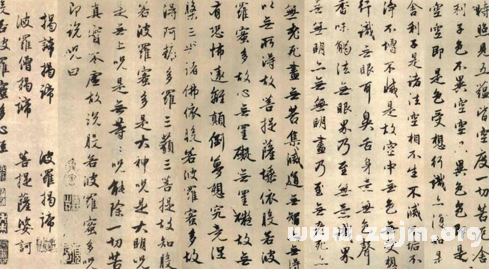 照見五蘊皆空度一切
利子色不異空空不異色色
空空即是色受想行識亦復如是
舍利子是諸法空相不生不滅不垢不
淨不增不減是故空中無色無受想
行識無眼耳鼻舌身意無色聲
香味觸法無眼界乃至無意識界
無無明亦無無明盡乃至無老死亦
無老死盡無苦集滅道無智亦無得
以無所得故菩提薩埵依般若波
羅蜜多故心無罣礙無罣礙故無
有恐怖遠離顛倒夢想究竟涅
槃三世諸佛依般若波羅蜜多故
得阿耨多羅三藐三菩提故知般
若波羅蜜多是大神咒是大明咒
是無上咒是無等等咒能除一切苦
真實不虛故說般若波羅蜜多咒
即說咒曰
揭諦揭諦 波羅揭諦
波羅僧揭諦 菩提薩婆訶
般若波羅蜜多心經
www.zajm.net